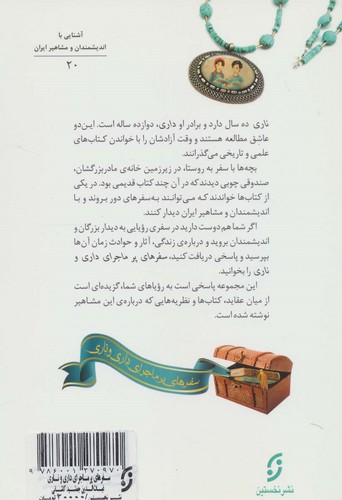 آشنایی با
اندیشمندان و مشاهیر ایران
۲۰
ناری ده سال دارد و برادر او داری، دوازده ساله است. این‌دو
عاشق مطالعه هستند و وقت آزادشان را با خواندن کتاب‌های
علمی و تاریخی می‌گذرانند.
بچه‌ها با سفر به روستا، در زیرزمین خانه‌ی مادربزرگشان،
صندوقی چوبی دیدند که در آن چند کتاب قدیمی بود. در یکی
از کتاب‌ها خواندند که می‌توانند به سفرهای دور بروند و با
اندیشمندان و مشاهیر ایران دیدار کنند.
اگر شما هم دوست دارید در سفری رؤیایی به دیدار بزرگان و
اندیشمندان بروید و درباره‌ی زندگی، آثار و حوادث زمان آن‌ها
بپرسید و پاسخی دریافت کنید، سفرهای پر ماجرای داری و
ناری را بخوانید.
این مجموعه پاسخی است به رؤیاهای شما، گزیده‌ای است
از میان عقاید، کتاب‌ها و نظریه‌هایی که درباره‌ی این مشاهیر
نوشته شده است.
سفرهای پر ماجرای داری و ناری
نشر نخستین
سفرهای پر ماجرای داری و ناری